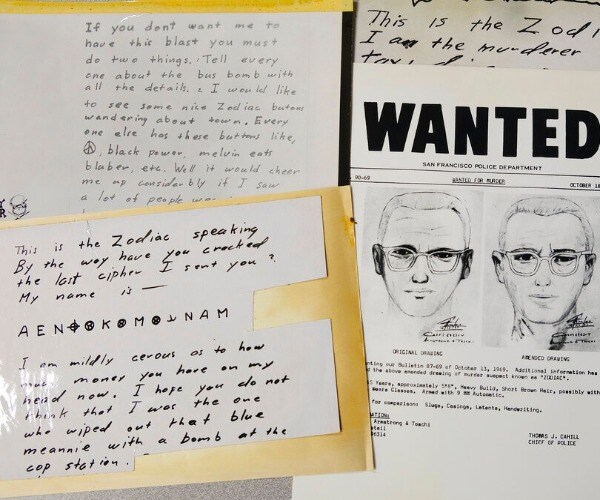 If you dont want me to
have this blast you must
do two things. Tell every
one about the bus bomb with
all the details. 2 I would like
to see some nice Zodiac butons
wandering about town. Every
one else has these buttons like,
☮, black power, melvin eats
blaber, etc. Well it would cheer
me up considerbly if I saw
a lot of people
This is the Zodiac speaking
By the way have you cracked
the last cipher I sent you ?
My name is —
A E N ⊕ K M N A M
I am mildly cerous as to how
much money you have on my
head now. I hope you do not
think that I was the one
who wiped out that blue
meannie with a bomb at the
cop station.
This is the Zodi
I am the murderer
WANTED
SAN FRANCISCO POLICE DEPARTMENT
90-69 WANTED FOR MURDER OCTOBER 18
ORIGINAL DRAWING AMENDED DRAWING
ting our Bulletin 87-69 of October 13, 1969. Additional information has
the above amended drawing of murder suspect known as "ZODIAC".
Years, approximately 5'8", Heavy Build, Short Brown Hair, possibly with
Wears Glasses. Armed with 9 MM Automatic.
for comparison: Slugs, Casings, Latents, Handwriting.
Armstrong & Toschi
THOMAS J. CAHILL
CHIEF OF POLICE